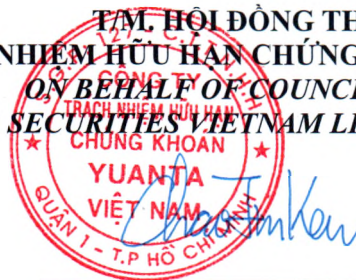 T/M. HỘI ĐỒNG TH
NHIỆM HỮU HẠN CHỨNG
ON BEHALF OF COUNC
SECURITIES VIETNAM LI
CÔNG TY
TRÁCH NHIỆM HỮU HẠN
CHỨNG KHOÁN
YUANTA
VIỆT NAM
QUẬN 1 - T.P HỒ CHÍ MINH